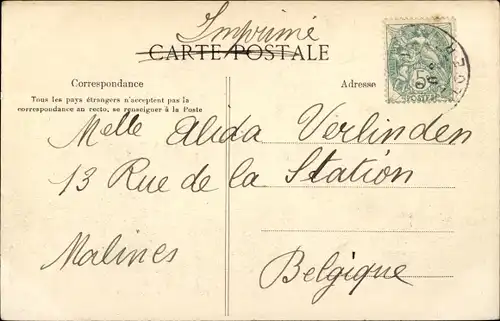 Imprimé
CARTE POSTALE
Correspondance
Adresse
Tous les pays étrangers n'acceptent pas la
correspondance au recto, se renseigner à la Poste
5
Melle Alida Verlinden
13 Rue de la Station
Malines
Belgique